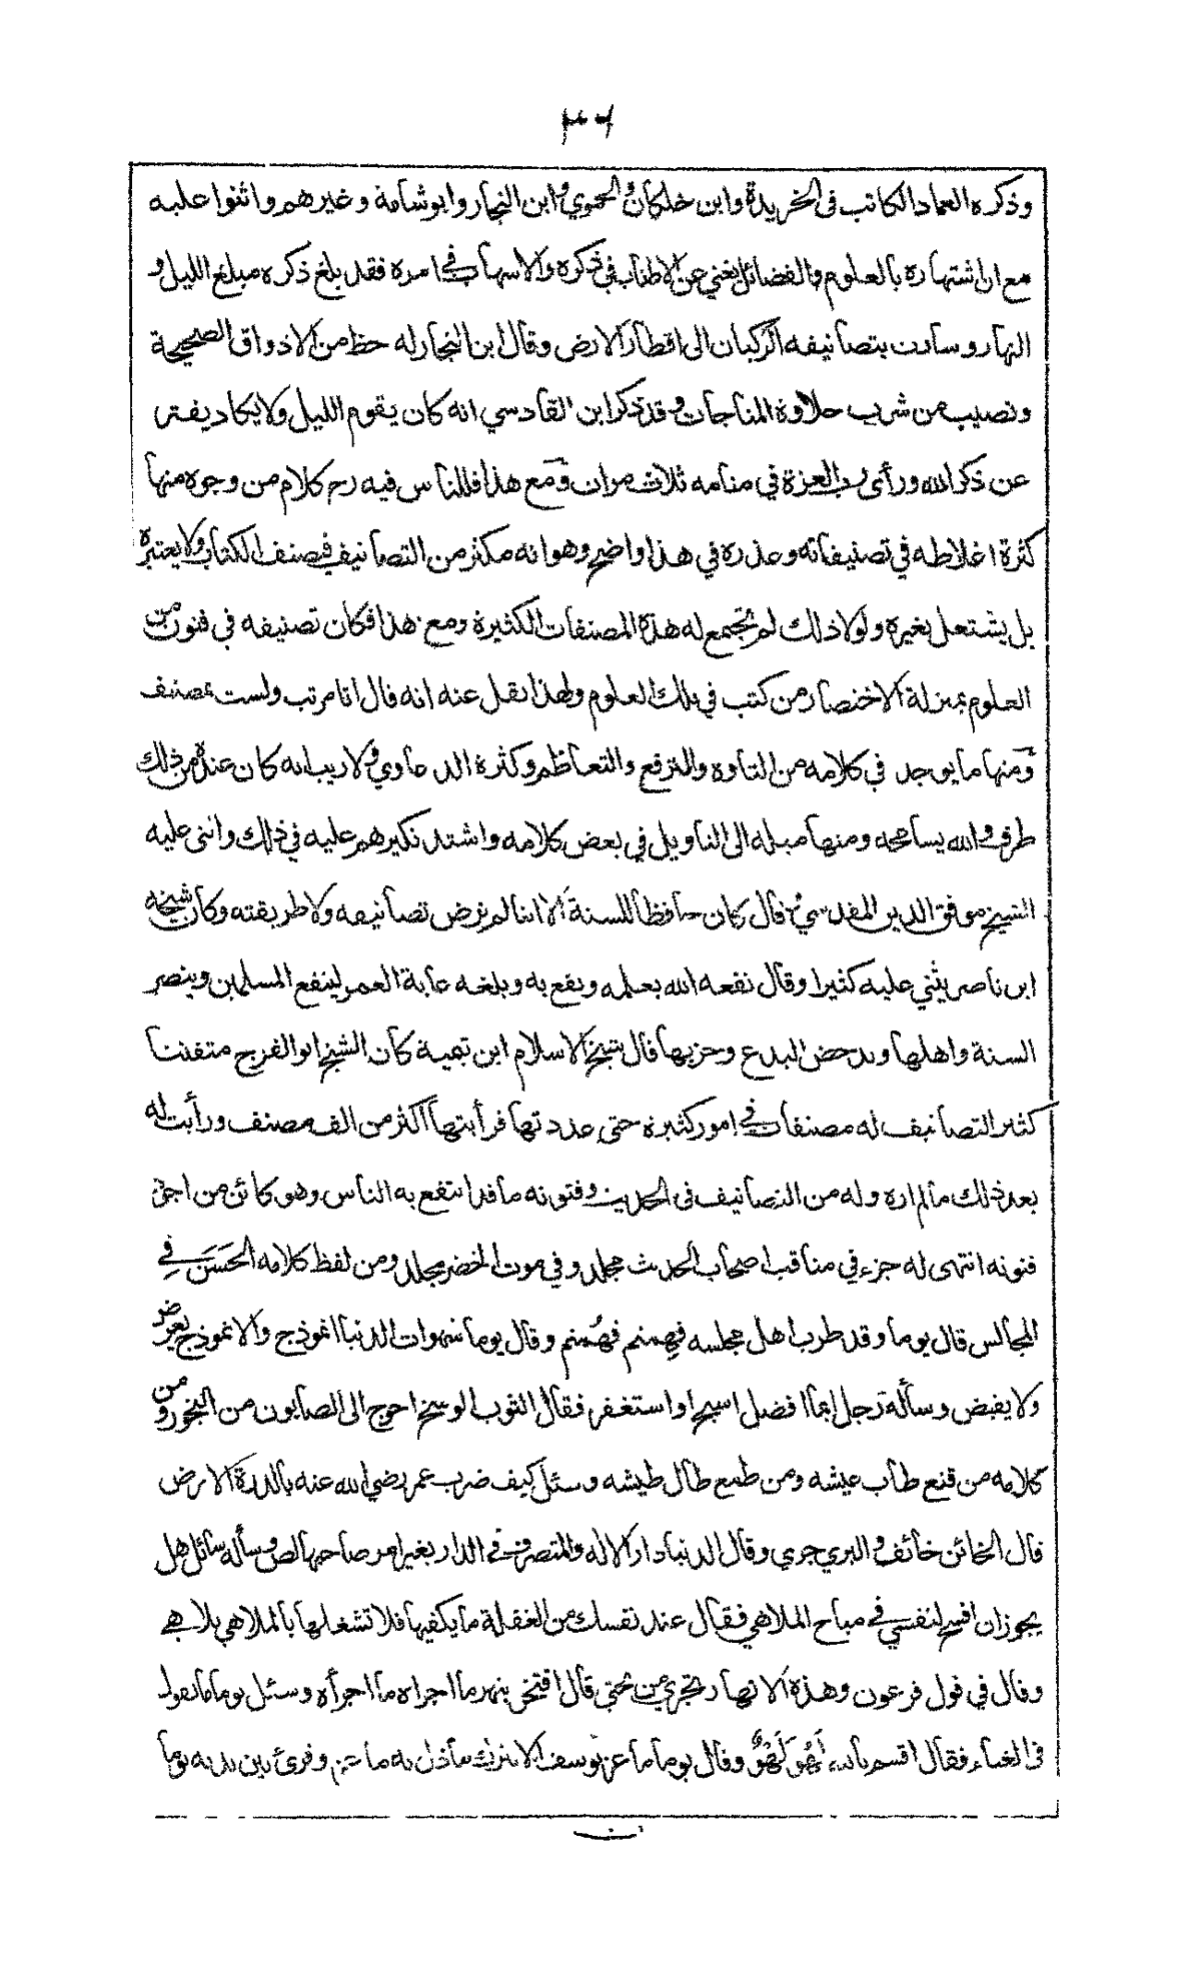 وذكره العماد الكاتب في الخريدة وابن خلكان والحموي وابن النجار وابو شامة وغيرهم واثنوا عليه
مع ان اشتهاره بالعلوم والفضائل يغني عن الاطناب في ذكره والاسهاب في امره فقد بلغ ذكره مبلغ الليل و
النهار وسارت بتصانيفه الركبان الى اقطار الارض وقال ابن النجار له حظ من الاذواق الصحيحة
ونصيب من شرب حلاوة المناجات وقد ذكر ابن القادسي انه كان يقوم الليل ولا يكاد يفتر
عن ذكر الله ورأى رب العزة في منامه ثلاث مرات ومع هذا فللناس فيه رح كلام من وجوه منها
كثرة اغلاطه في تصنيفاته وعذره في هذا واضح وهو انه مكثر من التصانيف فيصنف الكتاب ولا يعتبره
بل يشتعل بغيره ولولا ذلك لم تجمع له هذه المصنفات الكثيرة ومع هذا فكان تصنيفه في فنون من
العلوم بمنزلة الاختصار من كتب في تلك العلوم ولهذا نقل عنه انه قال انا مرتب ولست بمصنف
ومنها ما يوجد في كلامه من التاوه والترفع والتعاظم وكثرة الدعاوي ولا ريب انه كان عنده من ذلك
طرف والله يسامحه ومنها ميله الى التاويل في بعض كلامه واشتد نكيرهم عليه في ذلك واثنى عليه
الشيخ موفق الدين المقدسي وقال كان حافظا للسنة الا اننا لم نرض تصانيفه ولا طريقته وكان شيخه
ابن ناصر يثني عليه كثيرا وقال نفعه الله بعلمه ونفع به وبلغه غاية العمر لينفع المسلمين وينصر
السنة واهلها ويدحض البدع وحزبها قال شيخ الاسلام ابن تيمية كان الشيخ ابو الفرج متفننا
كثير التصانيف له مصنفات في امور كثيرة حتى عددتها فرأيتها اكثر من الف مصنف ورأيت له
بعد ذلك ما لم اره وله من التصانيف في الحديث وفنونه ما قد انتفع به الناس وهو كائن من اجود
فنونه انتهى له جزء في مناقب اصحاب الحديث مجلد وفي موت الخضر مجلد ومن لفظ كلامه الحسن في
المجالس قال يوما وقد طرب اهل مجلسه فهمتم فهمتم وقال يوما شهوات الدنيا انموذج والانموذج يعرض
ولا يقبض وسأله رجل ايما افضل اسبح او استغفر فقال الثوب الوسخ احوج الى الصابون من البخور ومن
كلامه من قنع طاب عيشه ومن طمع طال طيشه وسئل كيف ضرب عمر رضي الله عنه بالدرة الارض
قال الخائن خائف والبري جري وقال الدنيا دار الاله والمتصرف في الدار بغير امر صاحبها لص وسأله سائل هل
يجوز ان افسح لنفسي في مباح الملاهي فقال عند نفسك من الغفلة ما يكفيها فلا تشغلها بالملاهي
وقال في قول فرعون وهذه الانهار تجري من تحتي قال افتخر بنهر ما اجراه ما اجرأه وسئل يوما ما تقول
في الغناء فقال اقسم بالله لهو لهو وقال يوما ما عز يوسف الا بترك ما ذل به ماعز وقرئ بين يديه يوما